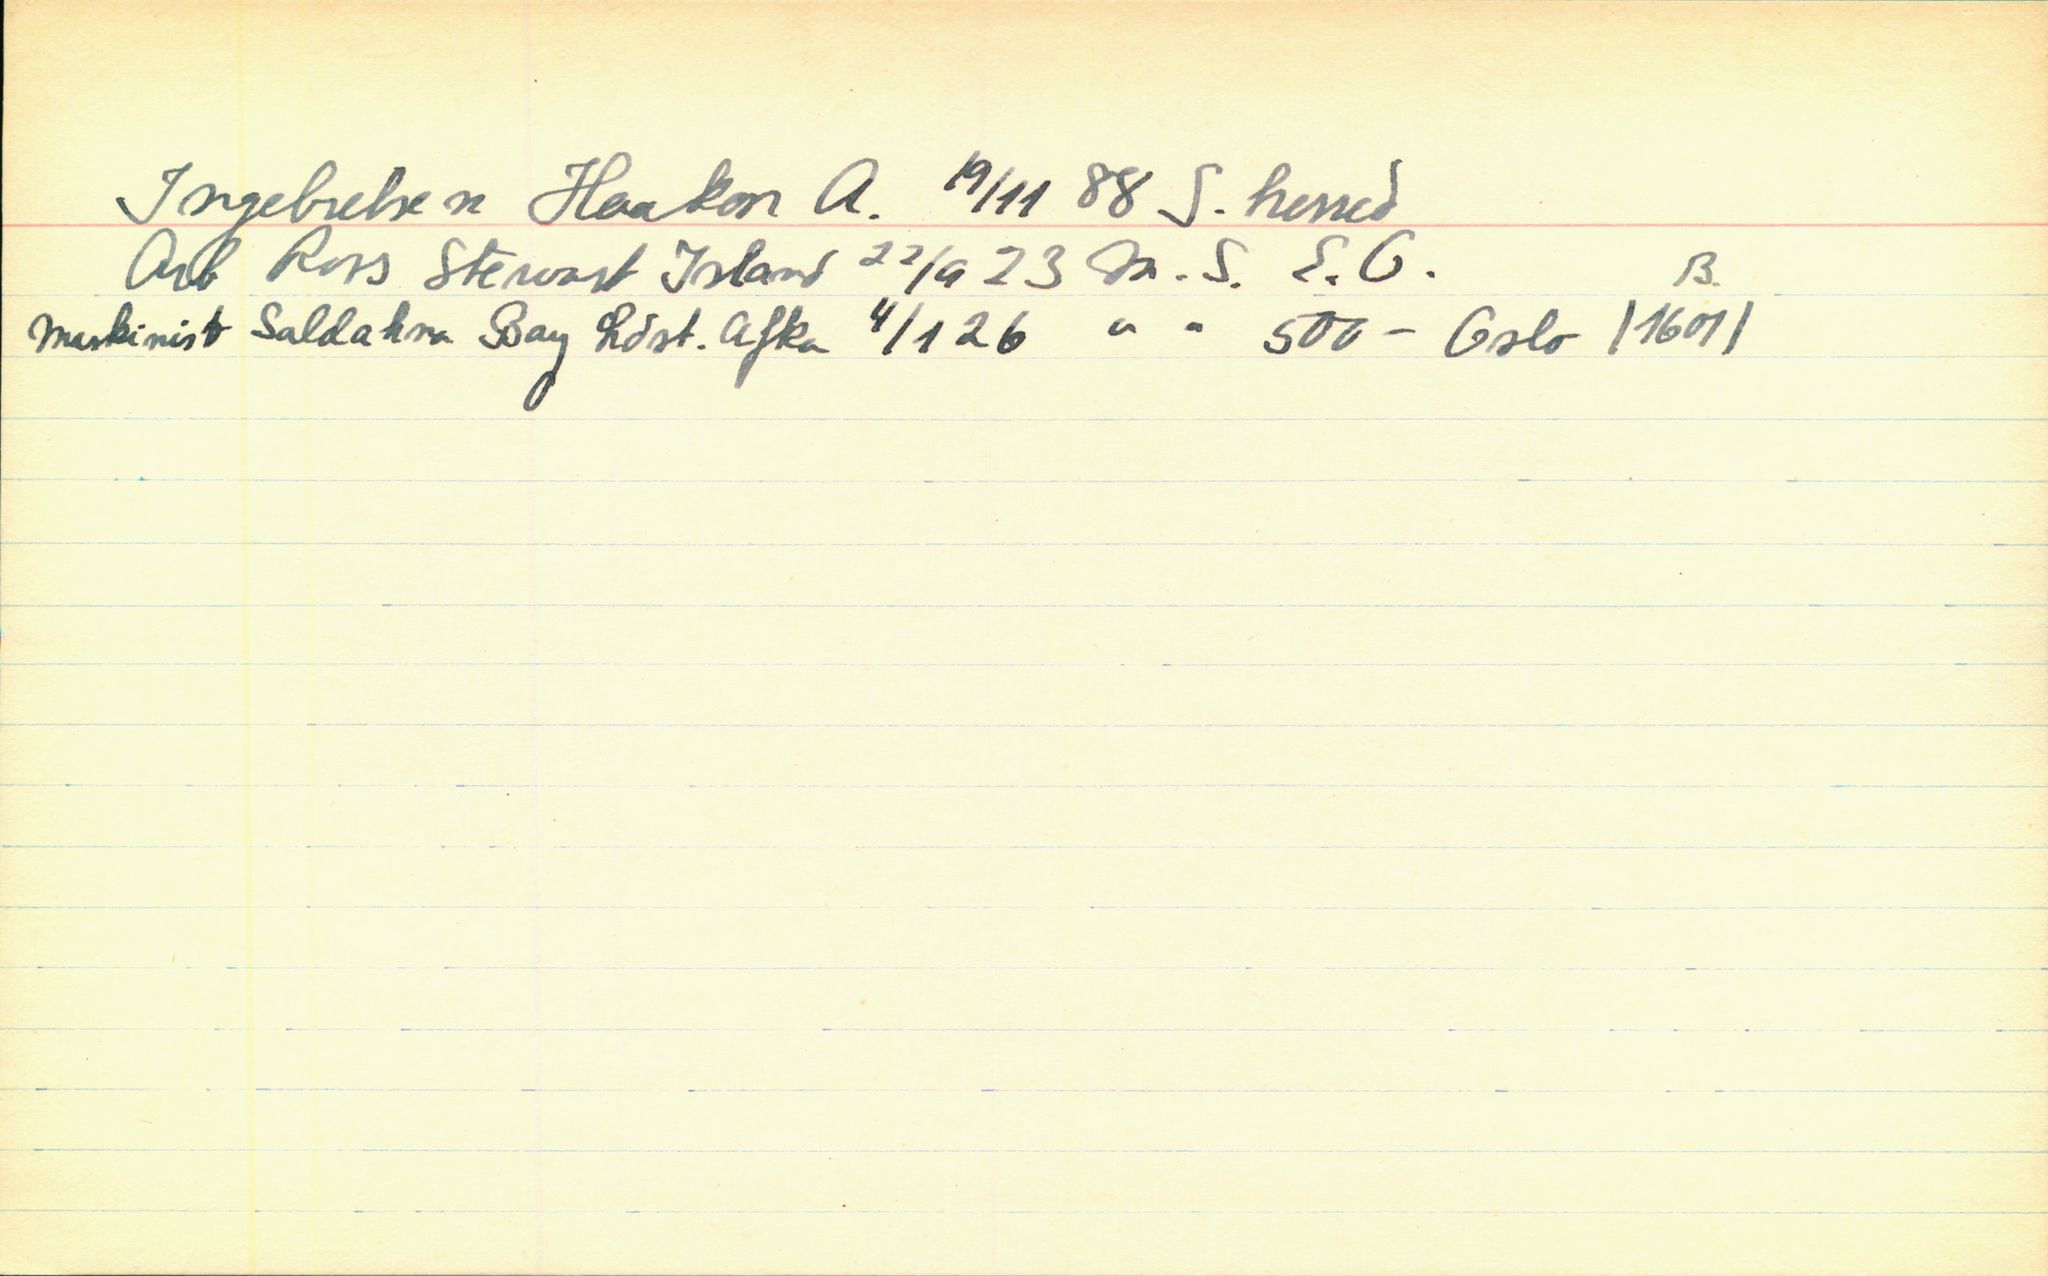 Ingebretsen Haakon A. 19/11 88 S. herred
Arb Ross Stewart Island 22/9 23 M. S. E. O.
B.
Maskinist Saldahna Bay Afka 4/1 26 " " 500 - Oslo /1601/